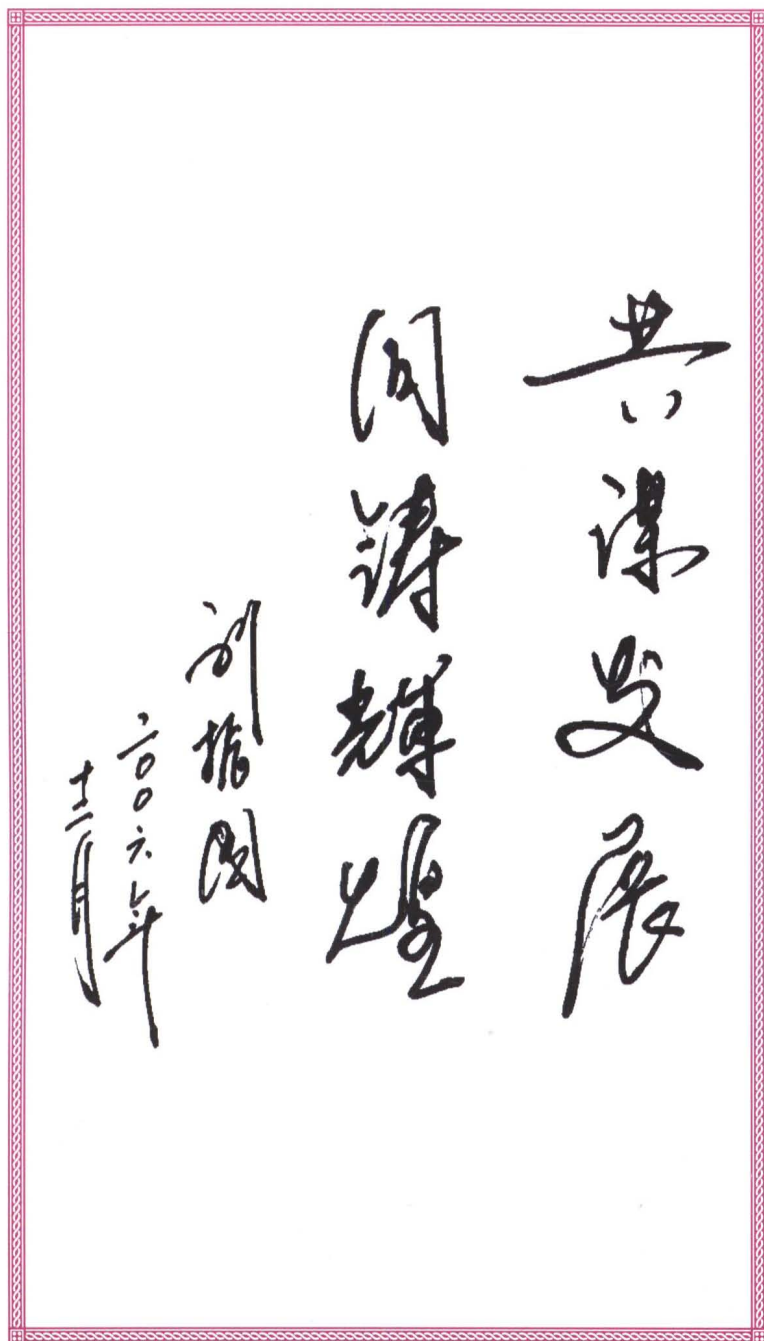 共谋发展
同铸辉煌
刘振国
二〇〇六年
十二月